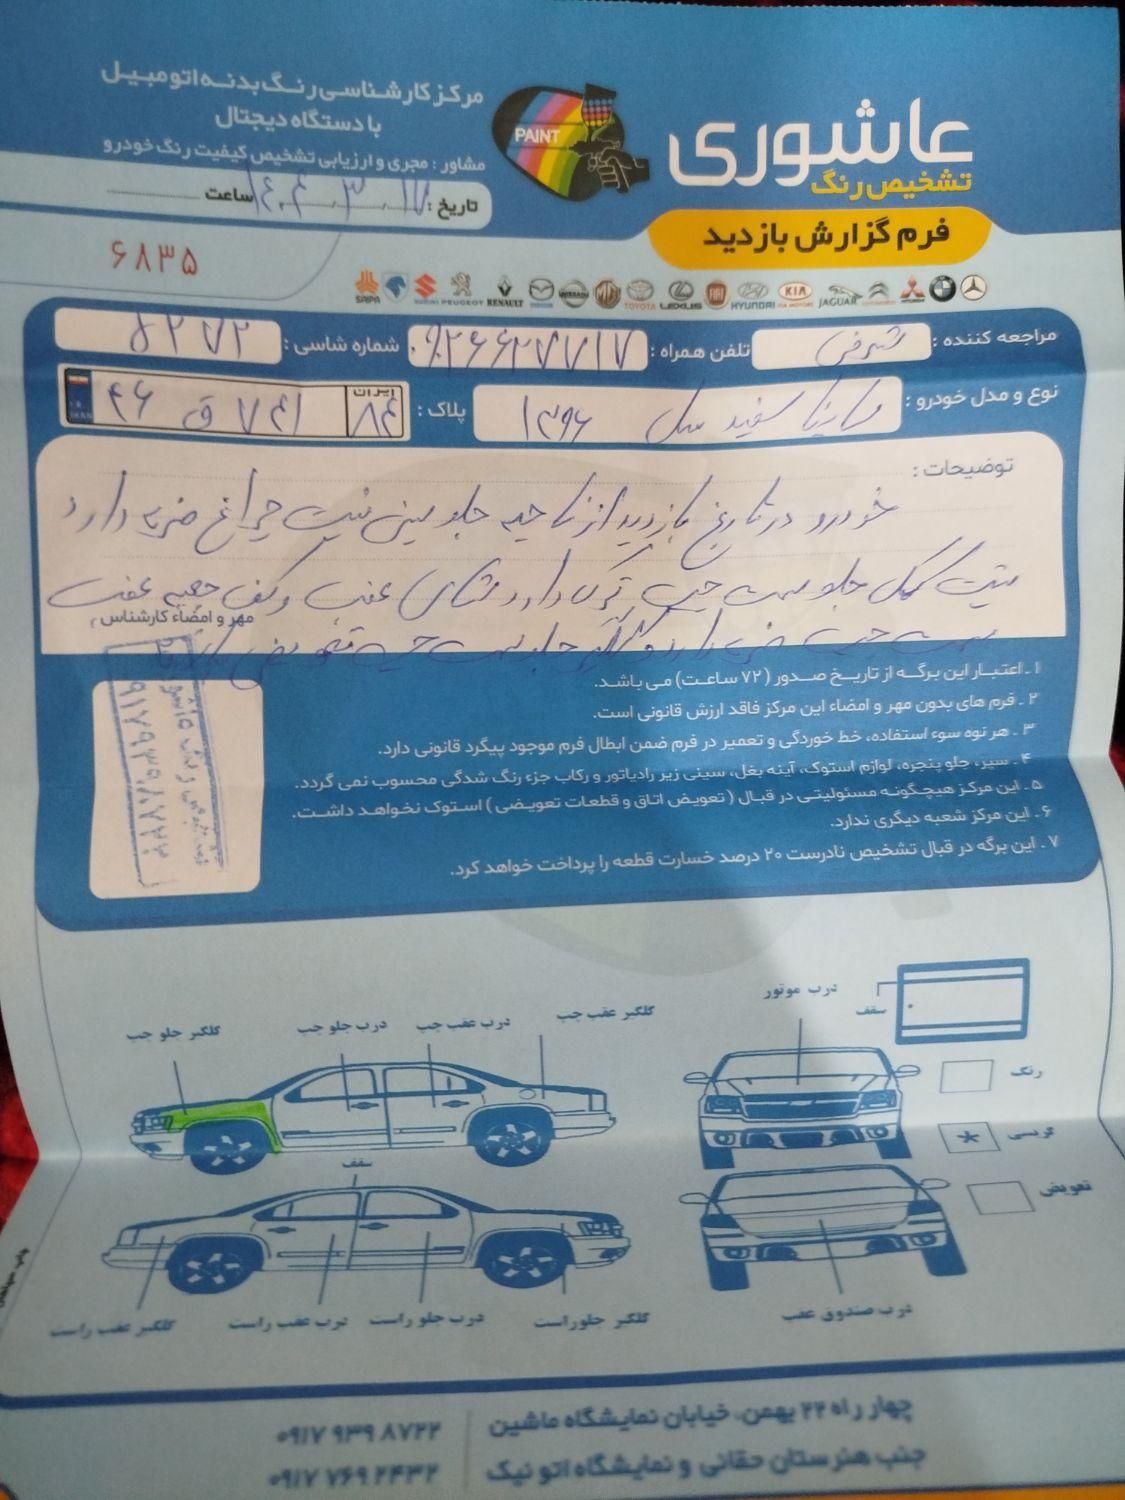 عاشوری
تشخیص رنگ
PAINT
مرکز کارشناسی رنگ بدنه اتومبیل
با دستگاه دیجتال
مشاور : مجری و ارزیابی تشخیص کیفیت رنگ خودرو
تاریخ : ۱۴۰۴.۳.۱۷ ساعت
فرم گزارش بازدید
۶۸۳۵
SAIPA SUZUKI PEUGEOT RENAULT MAZDA NISSAN MG TOYOTA LEXUS FIAT HYUNDAI KIA JAGUAR
مراجعه کننده : شرفی تلفن همراه : ۰۹۳۶۶۲۷۷۷۱۷ شماره شاسی : ۵۲۷۲
نوع و مدل خودرو : ساینا سفید مدل ۱۳۹۶ پلاک : ۴۶ ق ۷۴۱ ایران ۸۴
توضیحات :
خودرو در تاریخ بازدید از ناحیه جلو سینی پشت چراغ ضربه دارد
پشت گلگیر جلو سمت چپ ترک دارد و شاسی عقب و کف جعبه عقب
سمت چپ ضربه دارد و گلگیر جلو سمت چپ تعویض
مهر و امضاء کارشناس :
۱ ـ اعتبـار این برگـه از تاریخ صـدور (۷۲ ساعـت) می باشد.
۲ ـ فرم های بدون مهر و امضاء این مرکز فاقد ارزش قانونی است.
۳ ـ هر نوه سوء استفاده، خط خوردگی و تعمیر در فرم ضمن ابطال فرم موجود پیگرد قانونی دارد.
۴ ـ سپر، جلو پنجره، لوازم استوک، آینه بغل، سینی زیر رادیاتور و رکاب جزء رنگ شدگی محسوب نمی گردد.
۵ ـ این مرکز هیچگونه مسئولیتی در قبال ( تعویض اتاق و قطعات تعویضی ) استوک نخواهد داشت.
۶ ـ این مرکز شعبه دیگری ندارد.
۷ ـ این برگه در قبال تشخیص نادرست ۲۰ درصد خسارت قطعه را پرداخت خواهد کرد.
گلگیر جلو چپ درب جلو چپ درب عقب چپ گلگیر عقب چپ درب موتور سقف
رنگ
تعویض
سقف
گلگیر عقب راست درب عقب راست درب جلو راست گلگیر جلو راست درب صندوق عقب
چهار راه ۲۲ بهمن، خیابان نمایشگاه ماشین
جنب هنرستان حقانی و نمایشگاه اتو نیک
۰۹۱۷ ۹۳۹ ۸۷۲۲
۰۹۱۷ ۷۶۹ ۲۴۳۲